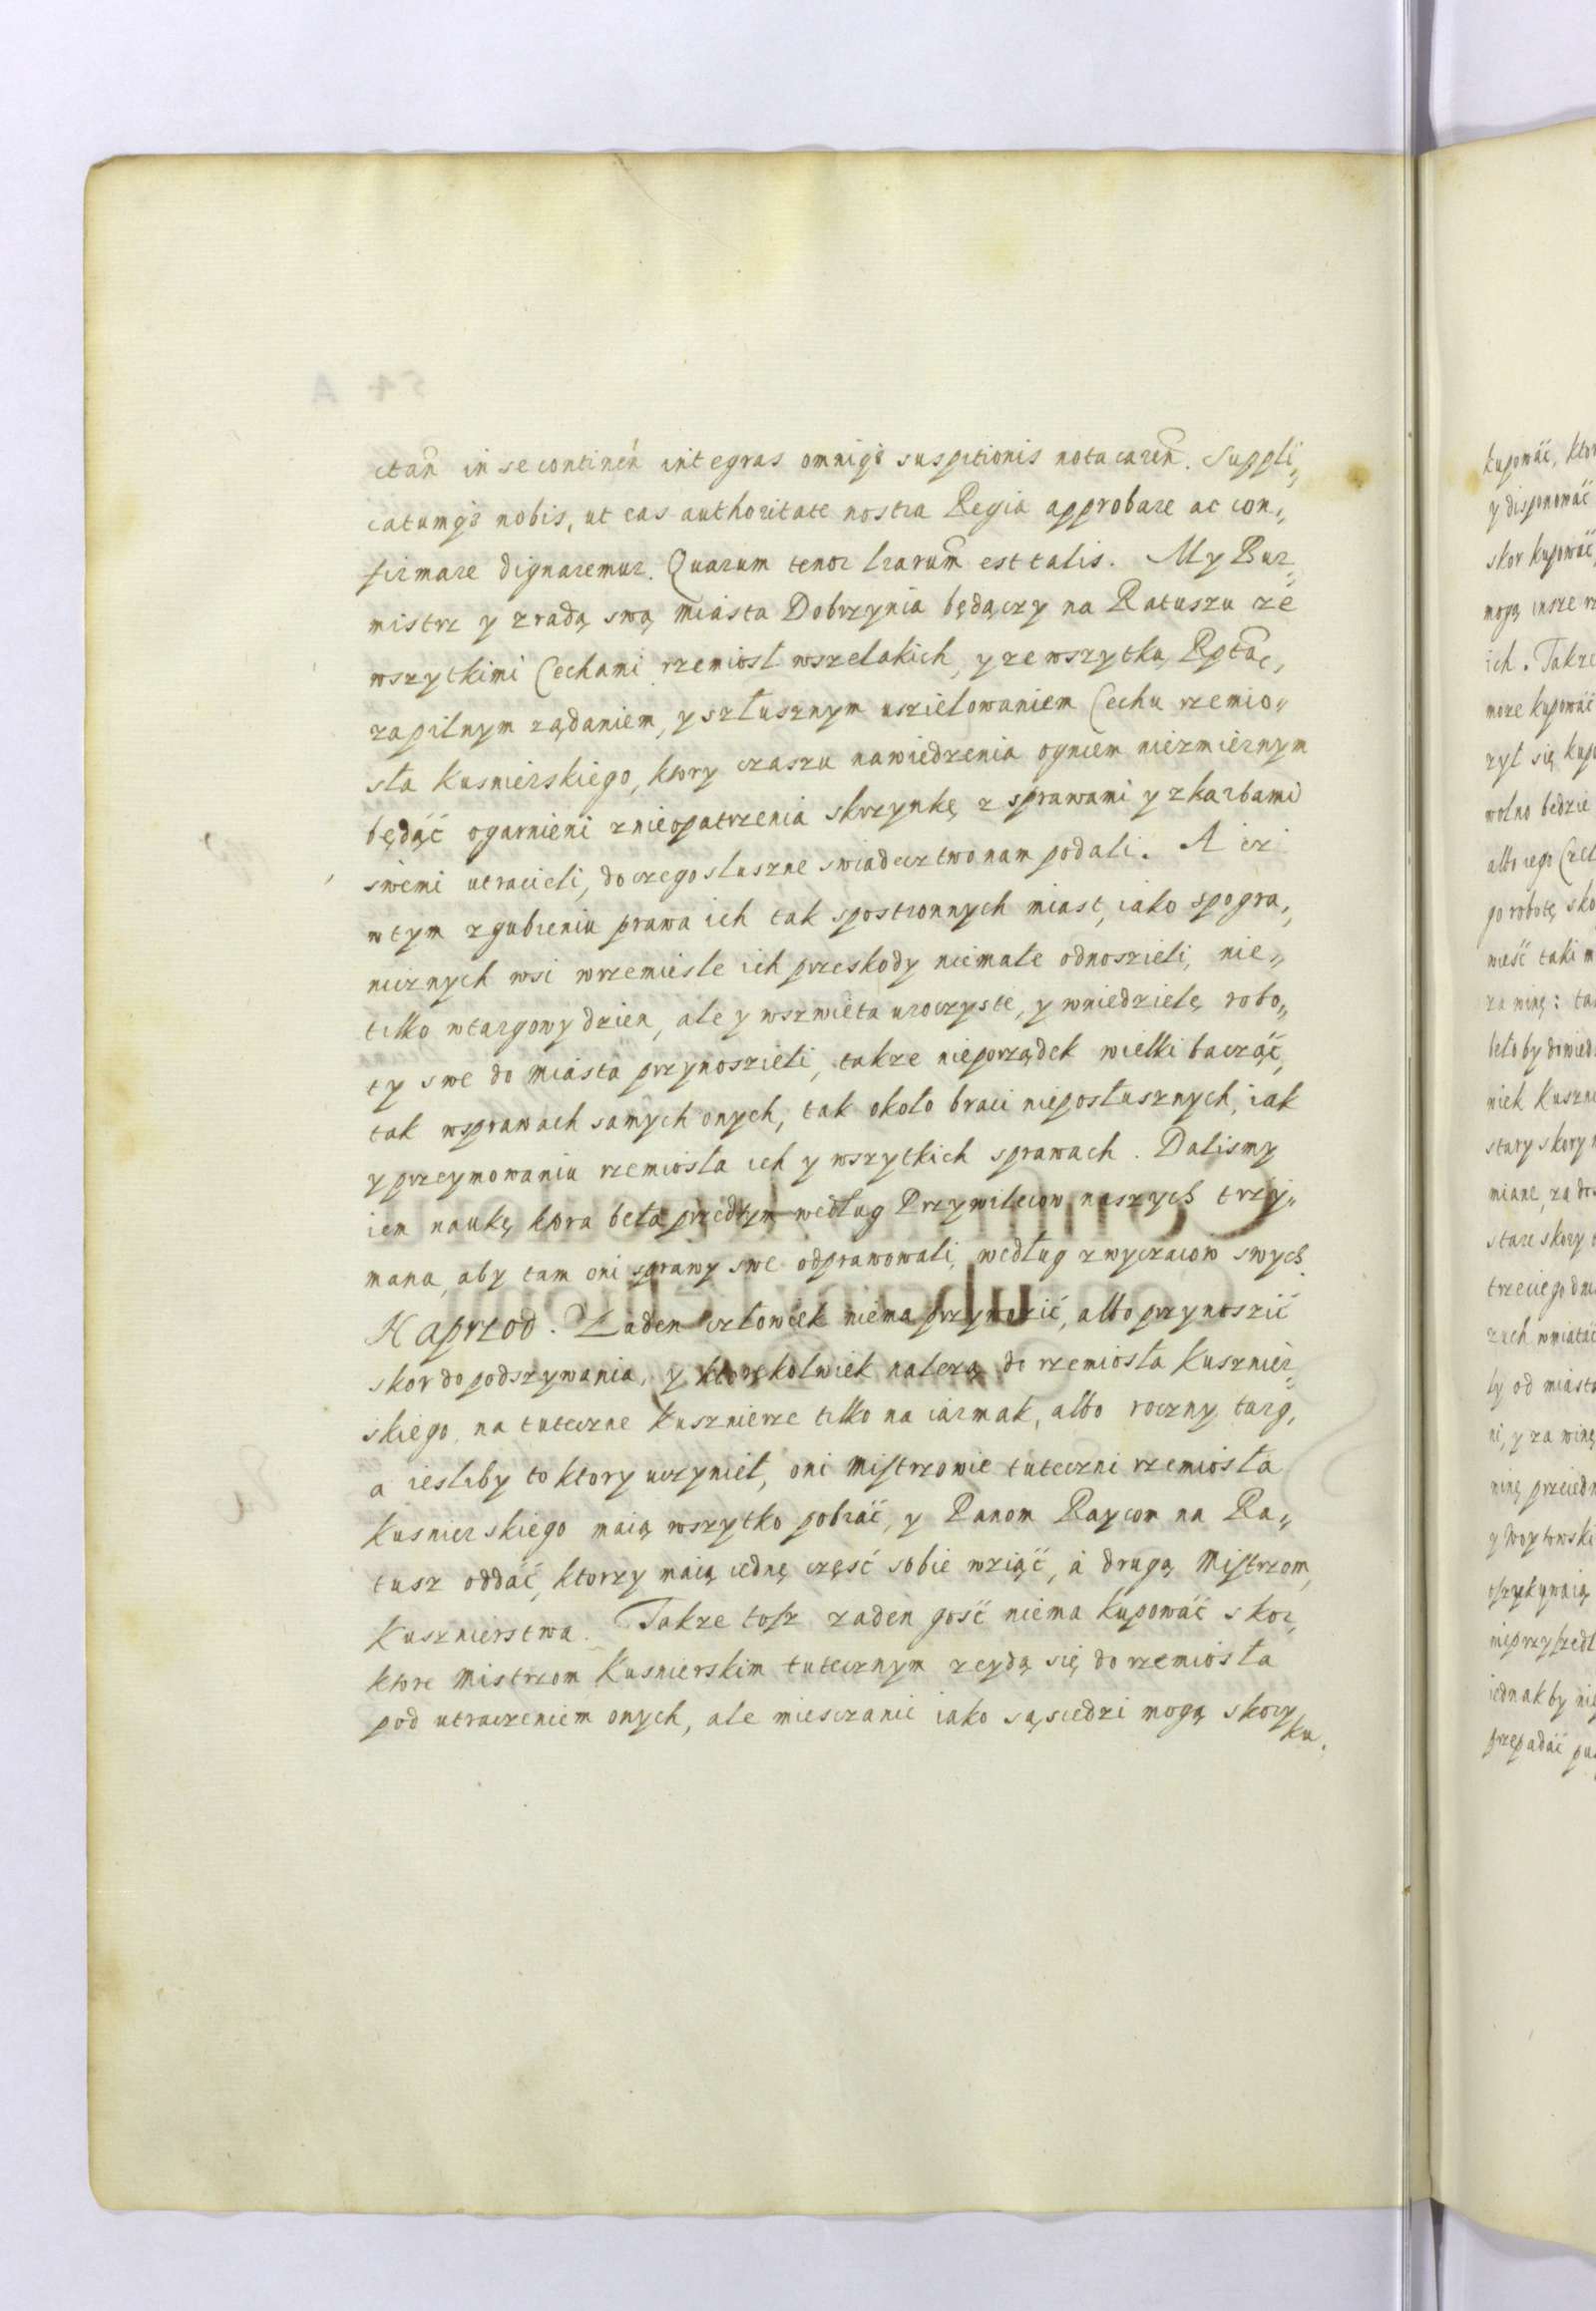 ctan in se continen integras omniqs suspitionis nota caren. Suppli„
catumqs nobis, ut eas authoritate nostra Regia approbare ac con„
firmare dignaremur. Quarum tenor lrarum est talis. My Bur„
mistrz y z radą swą miasta Dobrzynia będączy na Ratuszu ze
wszytkimi Cechami rzemiosl wszelakich, y ze wszytką Rptą,
za pilnym ządaniem, y szłusznym uszielowaniem Cechu rzemio„
sła kusnierskiego, ktory czaszu nawiedzenia ogniem niezmiernym
będąć ogarnieni z nieopatrzenia skrzynkę z sprawami y zkarbami
swemi utracieli, do czego sluszne swiadecztwo nam podali. A iz
w tym zgubieniu prawa ich tak spostronnych miast, iako spogra„
nicznych wsi w rzemiesle ich przeskody niemałe odnoszieli, nie„
tilko w targowy dzien, ale y w szwieta uroczyste, y w niedzielę robo„
ty swe do miasta przynoszieli, takze nieporządek wielki bacząć,
tak w sprawach samych onych, tak około braci nieposłusznych, iak
y przeymowaniu rzemiosła ich y wszytkich sprawach. Dalismy
iem naukę ktora beła przedtym według Przywileiow naszych trzy„
mana, aby tam oni sprawy swe odprawowali, według zwyczaiow swych.
Naprzod. Zaden człowiek niema przywozić, albo przynoszić
skor do podszywania, y ktorękolwiek nalezą do rzemiosła kusznier„
skiego, na tuteczne kusznierze tilko na iarmak, albo roczny targ,
a iesliby to ktory uczynieł, oni Mistrzowie tuteczni rzemiosła
kusnierskiego maią wszytko pobrać, y Panom Raycom na Ra„
tusz oddać, ktorzy maią iednę część sobie wziąć, a drugą Mistrzom,
kusznierstwa. Takze tosz zaden gość niema kupowáć skor,
ktore Mistrzom Kusnierskim tutecznym zeydą się do rzemiosła
pod utraczeniem onych, ale miesczanie iako sąsiedzi mogą skory
ku.
kupowáć,
y disponowáć
skor kupowáć,
mogą insze
ich. Takze
moze kupowáć
zył się
wolno bedzie
albo iego
go robotę
wieść taki
za winę:
beło by
niek
stary skory
miane, za
stare skory
trzeciego
zach wmiatać
ły od miasta
ni, y za winę
ninę
y Woytowski
nieprzyszedł
iednak by
przepadáć